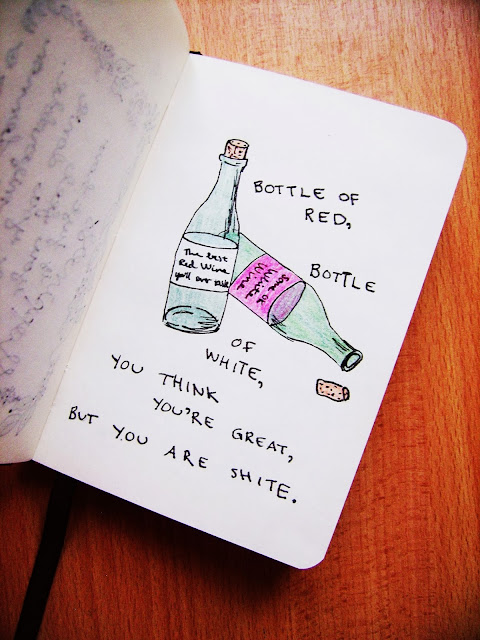 BOTTLE OF
RED,
The best
Red Wine
you'll ever
Some ok
White
Wine
BOTTLE
OF
WHITE,
YOU THINK
YOU'RE GREAT,
BUT YOU ARE SHITE.